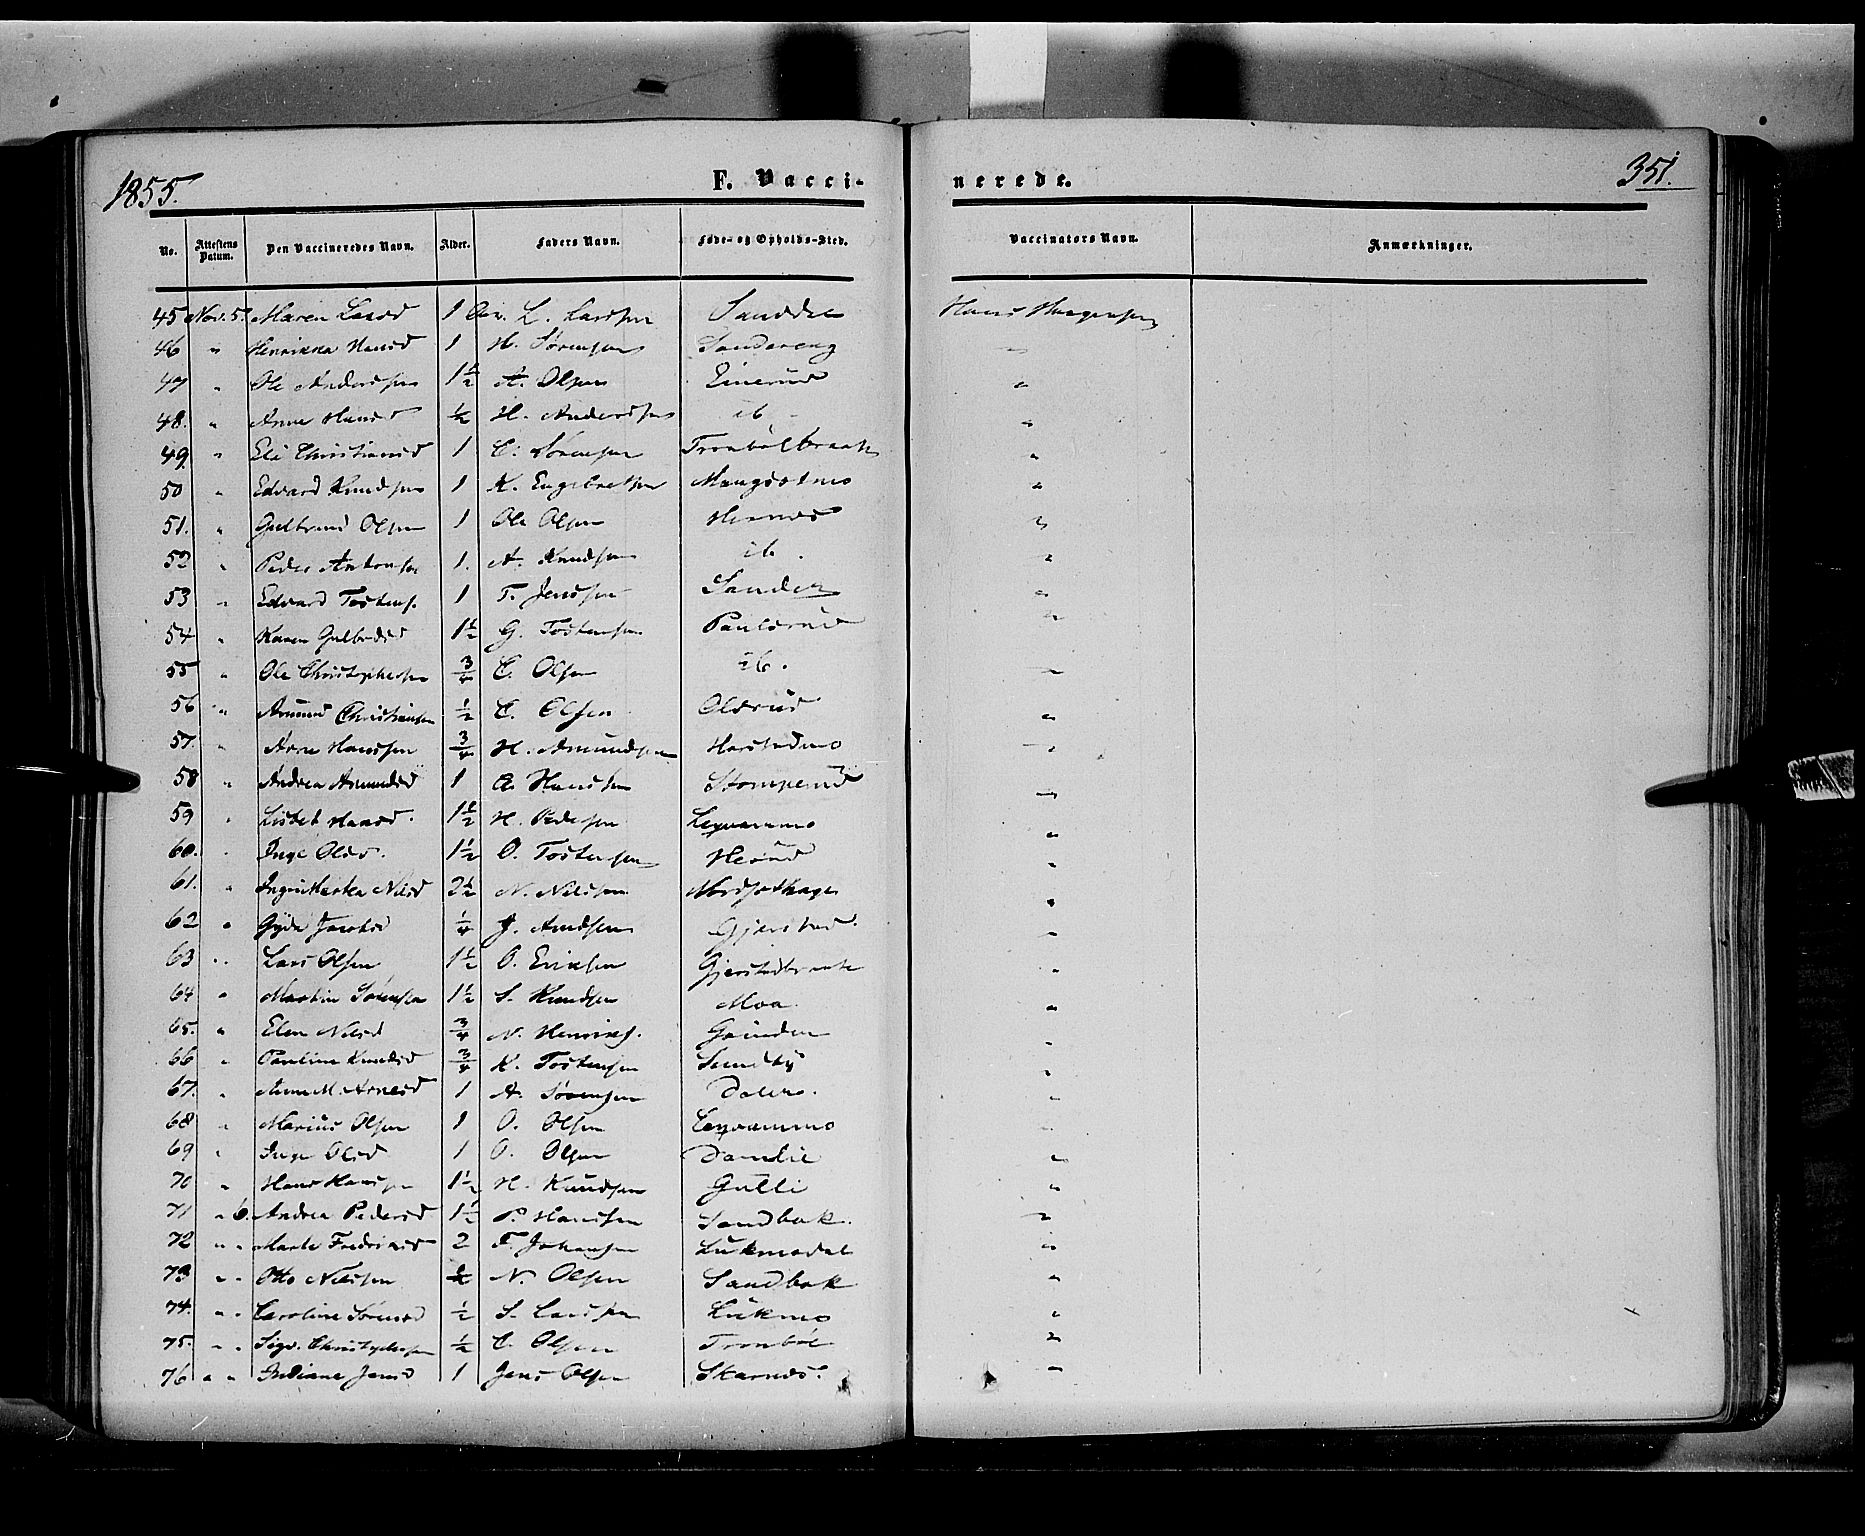 1855. F. Vacci- nerede. 351.
No. Attestens Datum. Den Vaccineredes Navn. Alder. Faders Navn. Føde- og Opholds-Sted. Vaccinators Navn. Anmærkninger.
45 Nov. 5. Maren Larsd 1 L. Larssen Hans Haagensen
46 " Henrikka Hansd 1 H. Sørensen Sandereng "
47 " Ole Anderssen 1½ A. Olsen Einerud "
48. " Anne Hansd ½ H. Anderssen ib "
49. " Eli Christiansd 1 C. Sørensen Tronbølbraate "
50 " Edvard Knudsen 1 K. Engebretsen "
51. " Gulbrand Olsen 1 Ole Olsen Hernes "
52 " Peder Antonsen 1. A. Knudsen ib. "
53 " Edvard Tostens. 1 T. Jenssen Sander "
54 " Karen Gulbrdsd 1½ G. Tostensen Paulsrud "
55 " Ole Christophersen ¾ C. Olsen ib. "
56 " Amund Christiansen ½ C. Olsen Olsrud "
57. " Arne Hanssen ¾ H. Amundsen Harstadmo "
58 " Andrea Amundsd 1 A. Hanssen Stomperud "
59 " Lisbet Hansd. 1½ H. Pedersen "
60. " Inge Olsd. 1½ O. Tostensen Herud "
61. " Nilsd 2½ N. Nilssen "
62 " Gyda Jacobsd ¼ J. Amdsen Gjerstad. "
63 " Lars Olsen 1½ O. Eriksen Gjerstadbraate "
64 " Martin Sørensen 1½ S. Knudsen Moa. "
65. " Elen Nilsd ¾ N. Henriks. Grinder "
66 " Pauline Knudsd ¾ K. Tostensen Sundby "
67. " Anne M. Arnesd 1 A. Sørensen "
68 " Marius Olsen 1 O. Olsen "
69 " Inge Olsd 1 O. Olsen Damlie "
70 " Hans Hanssen 1½ H. Knudsen Gulli "
71 " 6. Andrea Pedersd 1½ P. Hanssen Sandbak. "
72 " " Marte Fredriksd 2 F. Johansen "
73 " " Otto Nilssen ½ N. Olsen Sandbak "
74. " " Caroline Sørensd ½ S. Larssen Lukmo "
75. " " Sigv. Christophersen ½ C. Olsen Tronbøl "
76 " " Indiane Jensd 1 Jens Olsen Skarnes. "